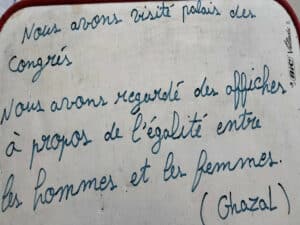 Nous avons visité palais des
Congrés
Nous avons regardé des affiches
à propos de l'égalité entre
les hommes et les femmes.
(Ghazal)